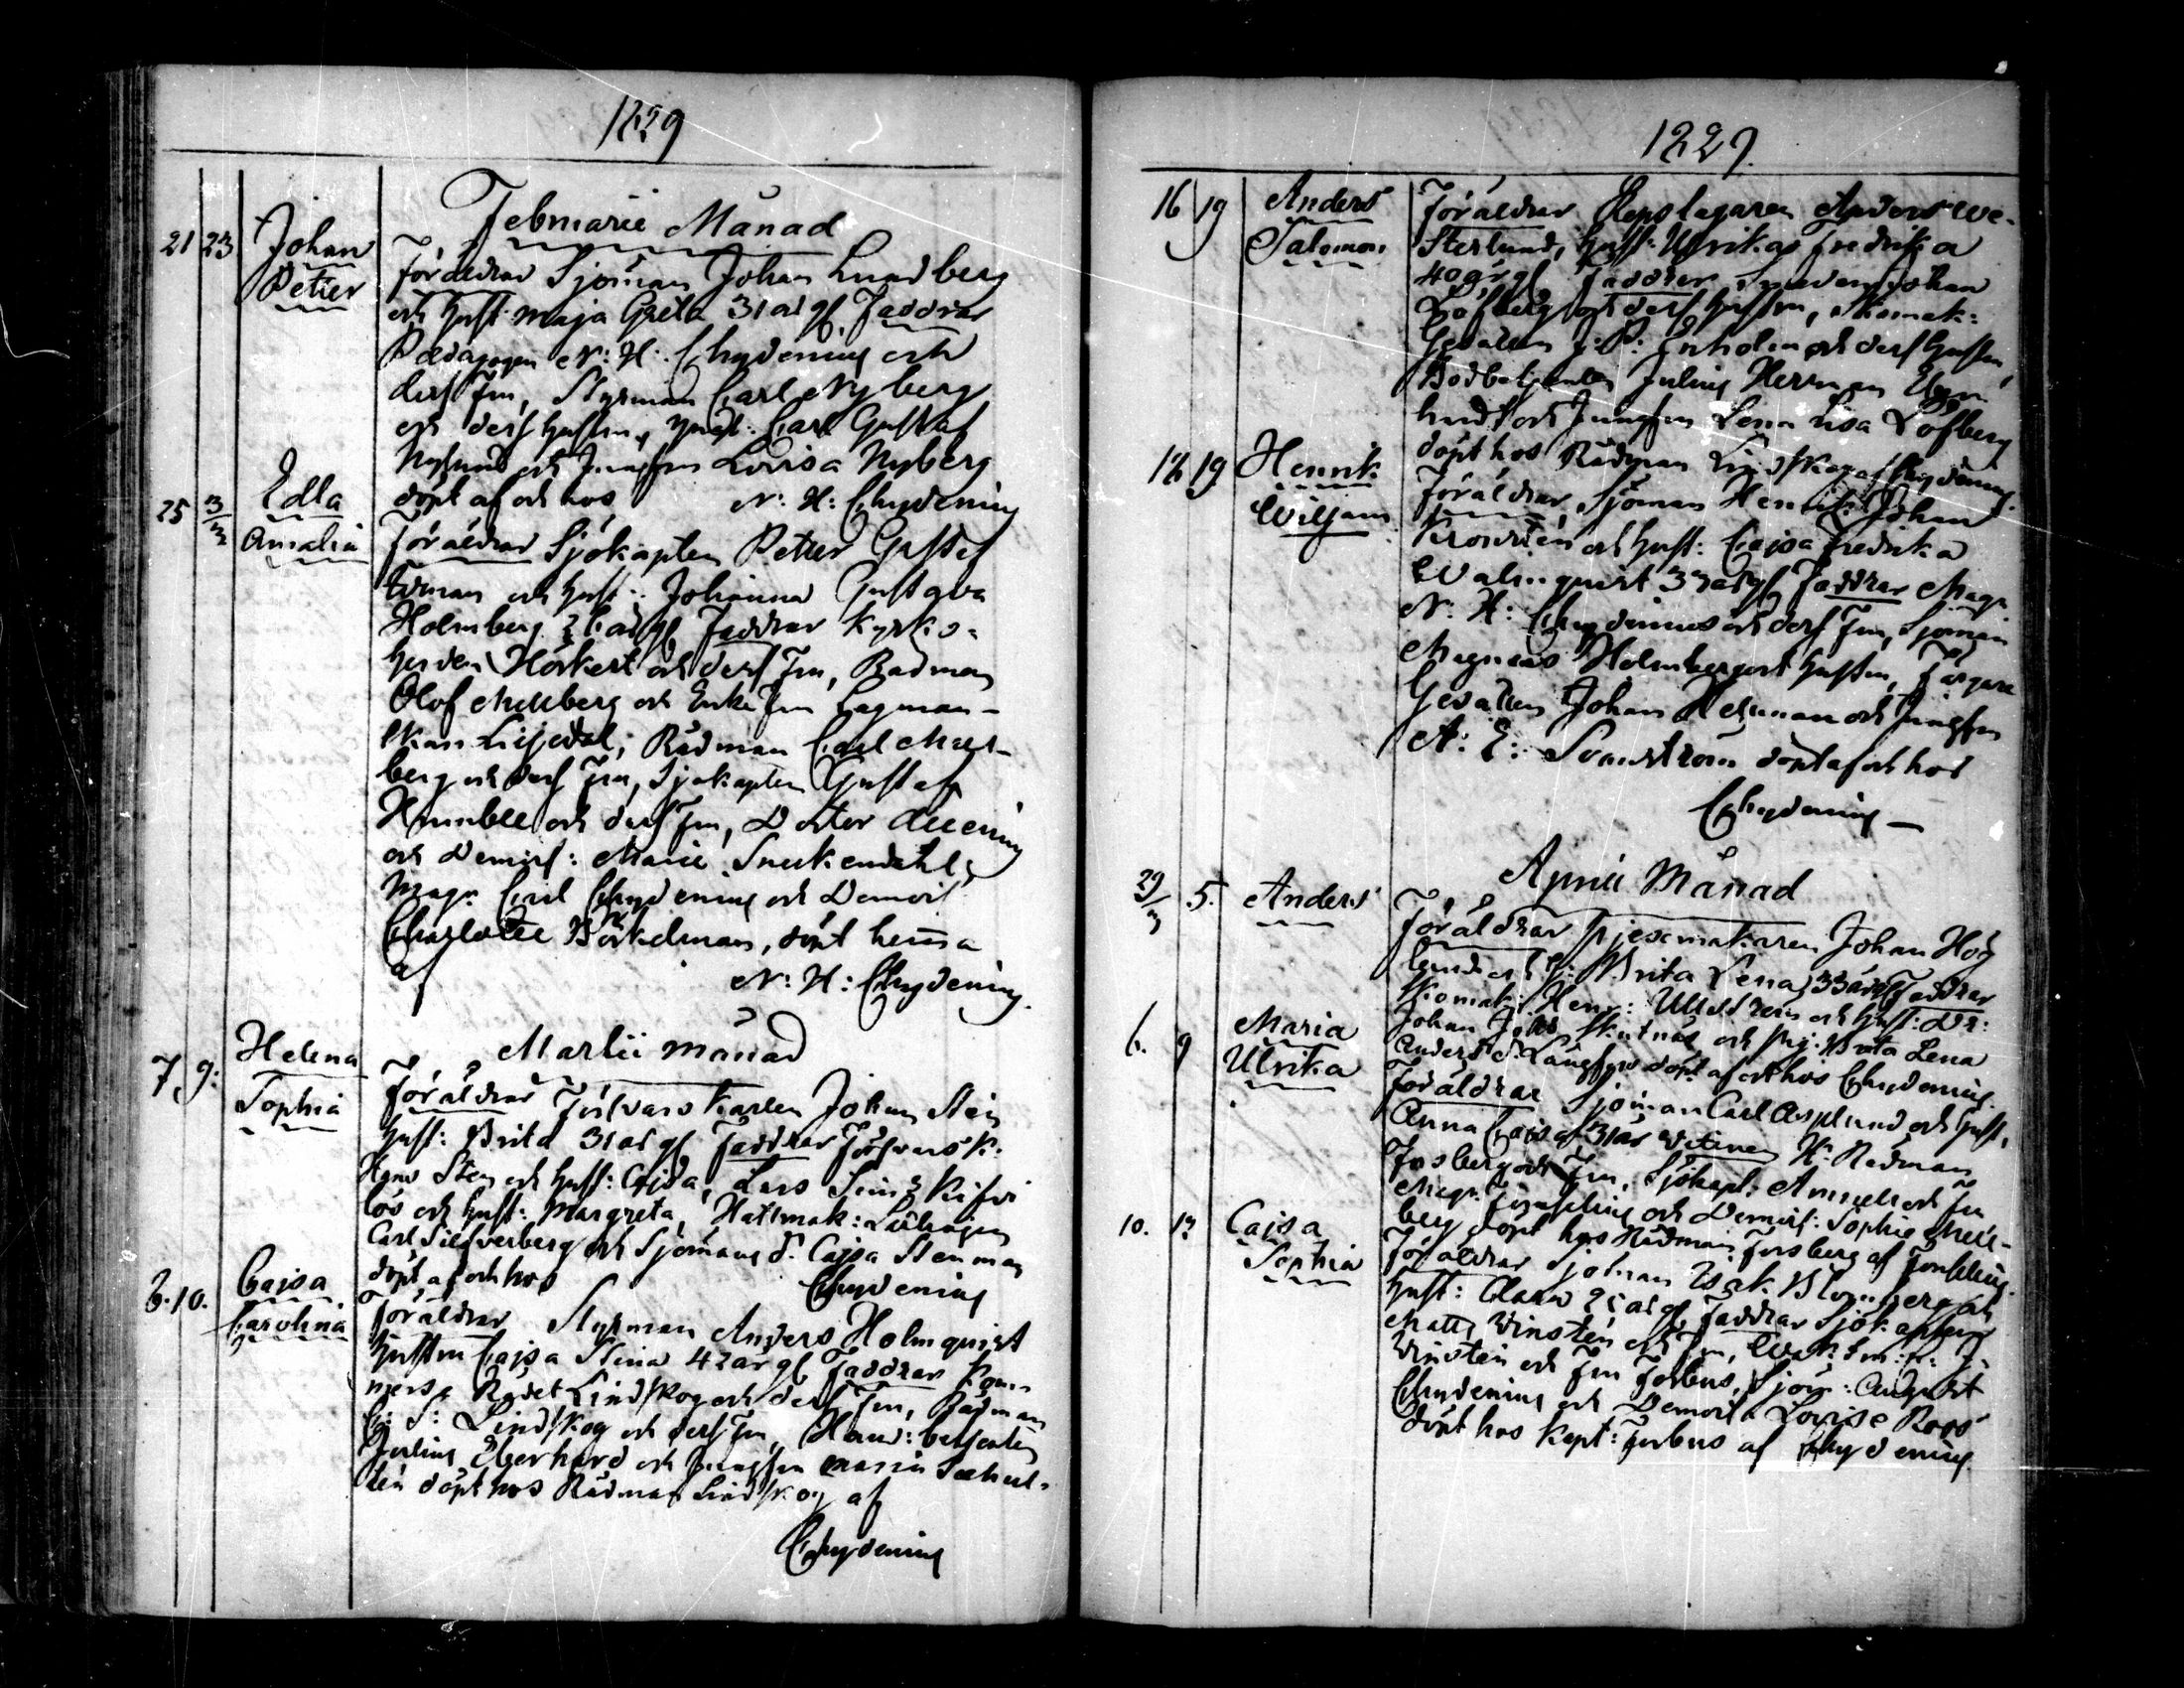 1829
Februarii Månad
21 23 Johan Petter
Föräldrar Sjöman Johan Lundberg
och hust: Maja Greta 31 år gl Faddrar
Pædagogen N: H: Chydenius och
dess Fru, Styrman Carl Nyberg
och dess hustru, Carl Gustaf
Nylund och Jungfru Lovisa Nyberg
döpt af och hos N: H: Chydenius
25 3/3 Edla Amalia
Föräldrar Sjökapten Petter Gustaf
och hust: Johanna Gustava
Holmberg år gl Faddrar Kyrko=
herden Hörkert och dess Fru, Rådman
Olof Mellberg och Enke Fru Lagman-
skan Liljedal, Rådman Carl Mell-
berg och dess Fru, Sjökapten Gustaf
Humble och dess Fru, Doktor
och Demois: Marie Sneckendahl,
Mag: Carl Chydenius och Demois
Charlotte Böckelman, döpt hemma
af N: H: Chydenius.
Martii månad
7 9: Helena Sophia
Föräldrar Försvarskarlen Johan Sten
hust: Brita 31 år gl Faddrar Försvarsk:
Sten och hust: Cajsa, Lars
lös och hust: Margreta, Hattmak: Lärlingen
Carl Silfverberg och Sjömans d: Cajsa Stenman
döpt af och hos Chydenius
8. 10. Cajsa Carolina
Föräldrar Styrman Anders Holmquist
hustru Cajsa Stina 42 år gl Faddrar Kom-
merse Rådet Lindskog och dess Fru, Rådman
C: S: Lindskog och dess Fru, Hand: betjenten
Julius Eberhard och Jungfru Maria
döpt hos Rådman Lindskog af
Chydenius
1829.
16 19 Anders Salomon
Föräldrar Repslagaren Anders We-
sterlund, hust: Ulrika Fredrika
40 år gl Faddrar Smeden Johan
Löfberg och dess hustru, Skomak:
Gesällen Enholm och dess hustru,
Bodbetjenten Julius Herman
och Jungfru Lena Lisa Löfberg
döpt hos Rådman Lindskog af Chydenius.
18 19 Henrik Wiljam
Föräldrar, Sjöman Henrik Johan
och hust: Cajsa Fredrika
Walmquist 33 år gl Faddrar Mag:
N: H: Chydenius och dess Fru, Sjöman
Magnus Holmberg och hustru, Färgare
Gesällen Johan Hedman och Jungfru
A: E: Svanström döpt af och hos
Chydenius
April Månad
29/3 5. Anders
Föräldrar Pjexemakaren Johan Hög
lund och h: Brita Lena 33 år gl Faddrar
Skomak: Henr: och hust:
Johan Skutnäs och pig: Brita Lena
Anders d: Långfors döpt af och hos Chydenius.
6. 9 Maria Ulrika
Föräldrar Sjöman Carl Asplund och hust,
Anna Cajsa 31 år Wittnen H: Rådman
Forsberg och Fru, Sjökapt: och Fru
Mag: och Demois: Sophie Mell-
berg döpt hos Rådman Forsberg af
10. 12 Cajsa Sophia
Föräldrar Sjöman Isak Blomberg och
hust: Clara 25 år gl Faddrar Sjökapten
Matts Winsten och Fru,
Winsten och Fru Forbus, Sjöm: August
Chydenius och Demois Lovise Roos
döpt hos Kapt: Forbus af Chydenius